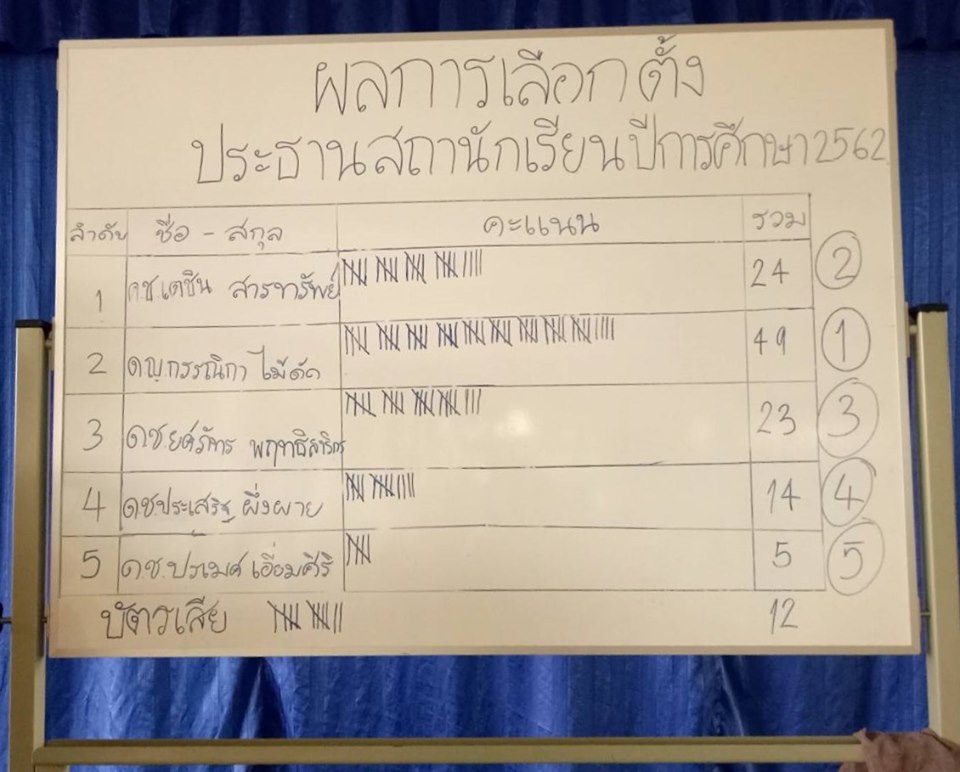 ผลการเลือกตั้ง
ประธานสถานักเรียนปีการศึกษา 2562
ลำดับ ชื่อ - สกุล คะแนน รวม
1 ด.ช.เตชิน สารทรัพย์ 24 2
2 ด.ญ.กรรณิกา ไม้ดัด 49 1
3 ด.ช. 23 3
4 ด.ช.ประเสริฐ ผึ่งผาย 14 4
5 ด.ช.ปรเมศ เอี่ยมคีรี 5 5
บัตรเสีย 12